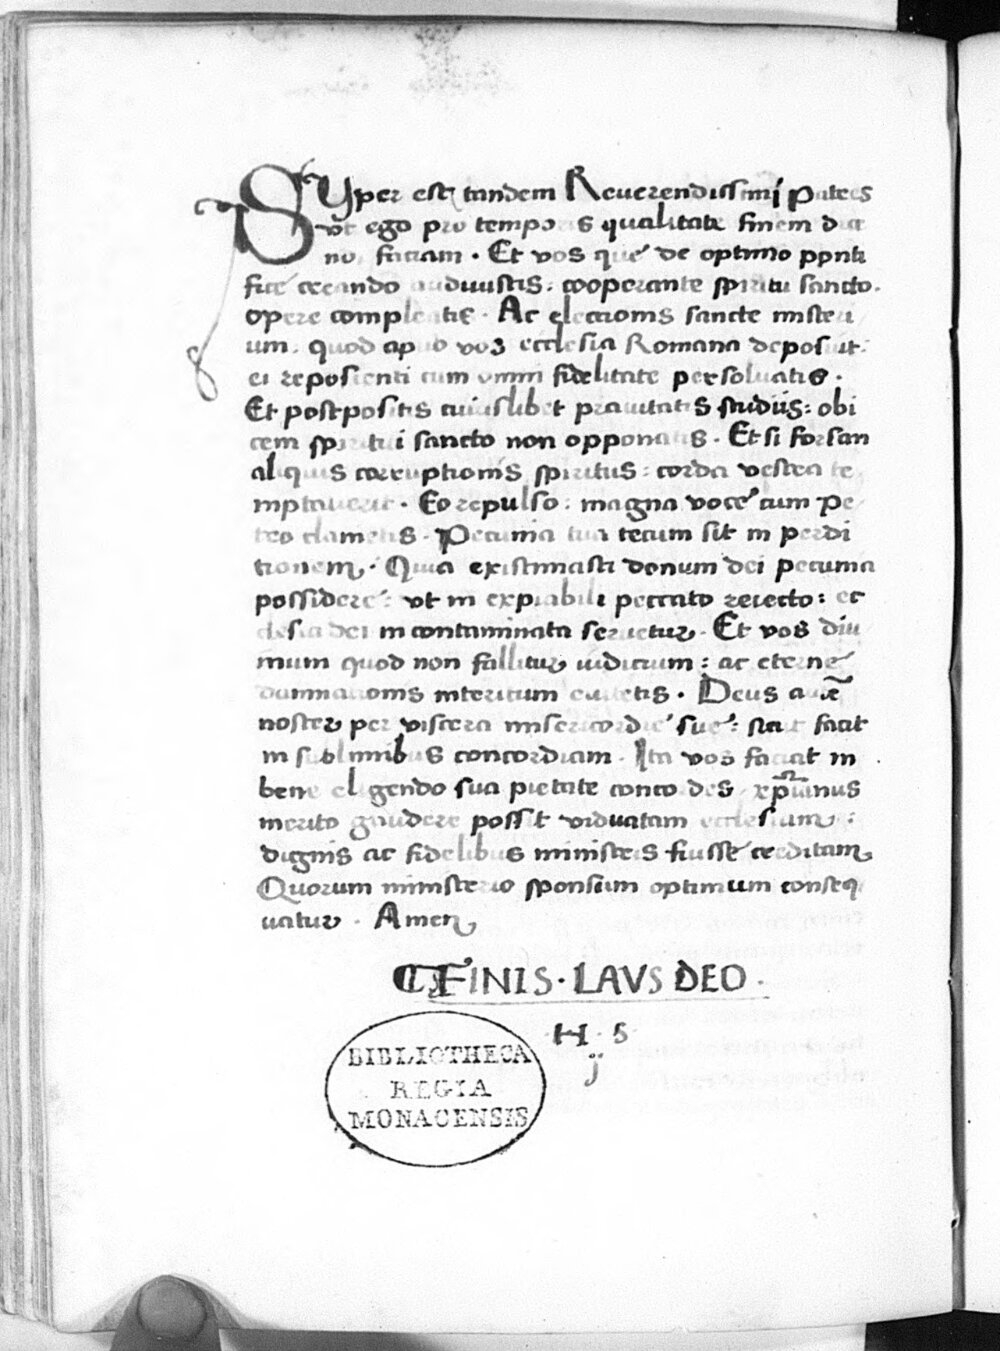 SVper est tandem Reuerendissimi patres
vt ego pro temporis qualitate finem dice
no faciam . Et vos que de optimo ponti
fice creando audiuistis : cooperante spiritu sancto .
opere compleatis . Ac electionis sancte misteri
um . quod apud vos ecclesia Romana deposuit :
ei reposcenti cum omni fidelitate persoluatis .
Et postpositis cuiuslibet prauitatis studiis : obi
cem spiritui sancto non opponatis . Et si forsan
aliquis corruptionis spiritus : corda vestra te
mptauerit . Eo repulso : magna voce cum Pe
tro clametis . Pecunia tua tecum sit in perdi
tionem . Quia existimasti donum dei pecunia
possidere : vt in expiabili peccato reiecto : ec
clesia dei incontaminata seruetur . Et vos diui
num quod non fallitur iudicium : ac eterne
damnationis interitum euitetis . Deus autē
noster per viscera misericordie sue : sicut facit
in sublimibus concordiam . Ita vos faciat in
bene eligendo sua pietate concordes . xp̄ianus
merito gaudere possit viduatam ecclesiam :
dignis ac fidelibus ministris fuisse creditam
Quorum ministerio sponsum optimum conseq
uatur . Amen
FINIS . LAVS DEO .
H . S
ij
BIBLIOTHECA
REGIA
MONACENSIS